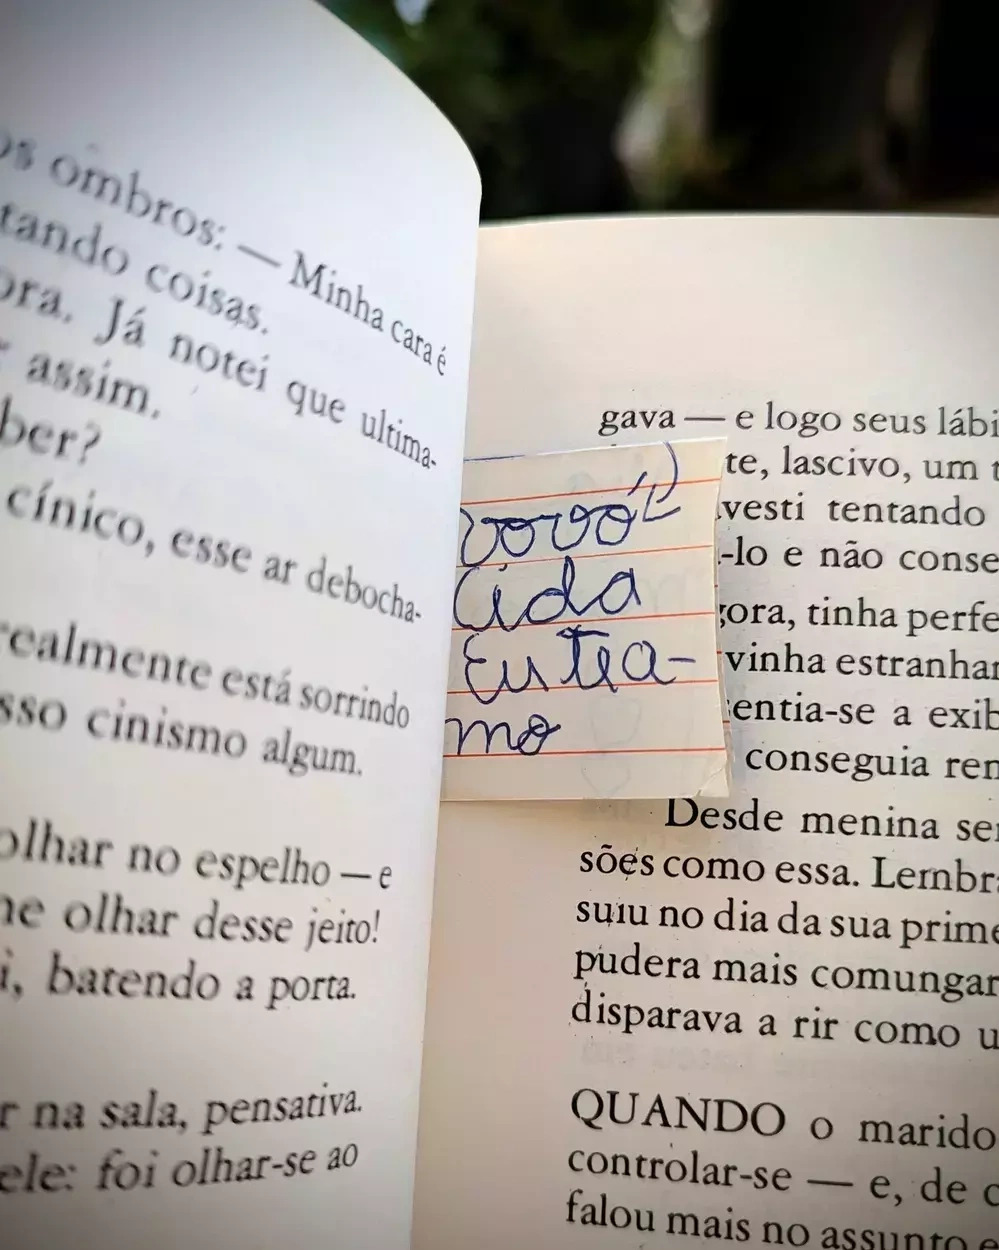 os ombros: — Minha cara é
tando coisas.
ora. Já notei que ultima-
assim.
ber?
cínico, esse ar debocha-
realmente está sorrindo
sso cinismo algum.
olhar no espelho — e
me olhar desse jeito!
i, batendo a porta.
r na sala, pensativa.
ele: foi olhar-se ao
vovó!!
Cida
Eu te a-
mo
gava — e logo seus lábi
te, lascivo, um t
vesti tentando
-lo e não conse
gora, tinha perfe
vinha estranhar
sentia-se a exib
conseguia ren
Desde menina se
sões como essa. Lembra
suiu no dia da sua prime
pudera mais comungar
disparava a rir como u
QUANDO o marido
controlar-se — e, de
falou mais no assunto e